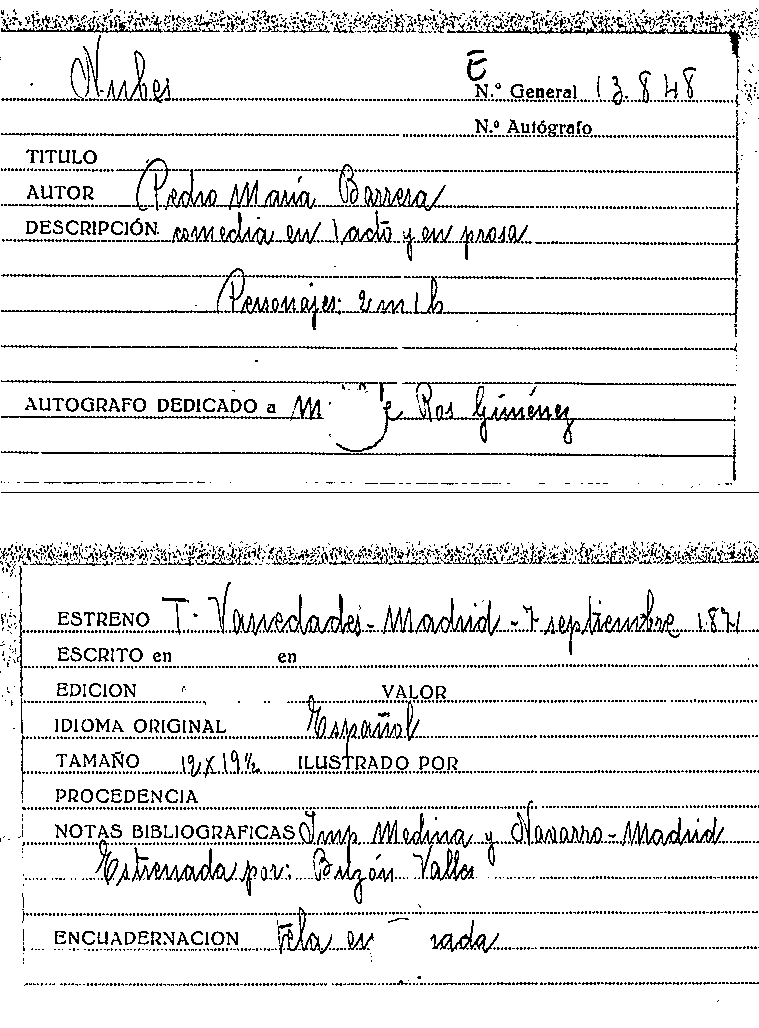 Nubes
E
N.º General 13.848
N.º Autógrafo
TITULO
AUTOR Pedro María Barrera
DESCRIPCIÓN comedia en 1 acto y en prosa
Personajes: 2 m 1 h
AUTOGRAFO DEDICADO a Ros Giménez
ESTRENO T. Variedades - Madrid - 7 septiembre 1871
ESCRITO en en
EDICION VALOR
IDIOMA ORIGINAL Español
TAMAÑO 12 X 19 ½ ILUSTRADO POR
PROCEDENCIA
NOTAS BIBLIOGRAFICAS Imp Medina y Navarro - Madrid
Estrenada por: Buzón Valles
ENCUADERNACION Tela en